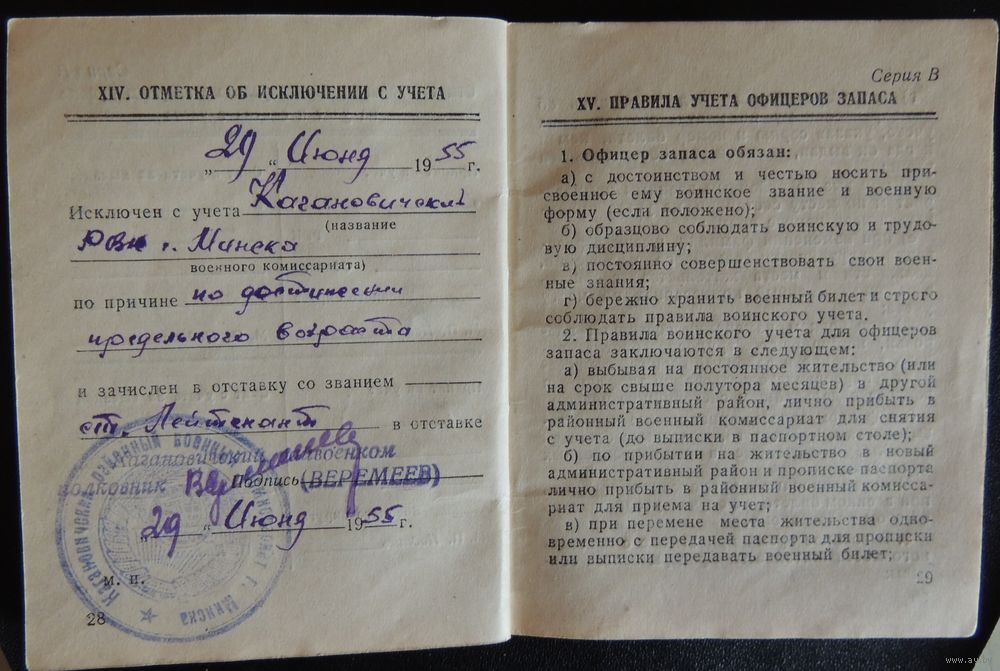 XIV. ОТМЕТКА ОБ ИСКЛЮЧЕНИИ С УЧЕТА
„29“ Июня 1955 г.
Исключен с учета Кагановическим
(название
РВК г. Минска
военного комиссариата)
по причине по достижении
предельного возраста
и зачислен в отставку со званием
ст. Лейтенант в отставке
Кагановический райвоенком
полковник Подпись (ВЕРЕМЕЕВ)
„29“ Июня 1955 г.
м. п.
28
Серия В
XV. ПРАВИЛА УЧЕТА ОФИЦЕРОВ ЗАПАСА
1. Офицер запаса обязан:
а) с достоинством и честью носить при-
своенное ему воинское звание и военную
форму (если положено);
б) образцово соблюдать воинскую и трудо-
вую дисциплину;
в) постоянно совершенствовать свои воен-
ные знания;
г) бережно хранить военный билет и строго
соблюдать правила воинского учета.
2. Правила воинского учета для офицеров
запаса заключаются в следующем:
а) выбывая на постоянное жительство (или
на срок свыше полутора месяцев) в другой
административный район, лично прибыть в
районный военный комиссариат для снятия
с учета (до выписки в паспортном столе);
б) по прибытии на жительство в новый
административный район и прописке паспорта
лично прибыть в районный военный комисса-
риат для приема на учет;
в) при перемене места жительства одно-
временно с передачей паспорта для прописки
или выписки передавать военный билет;
29